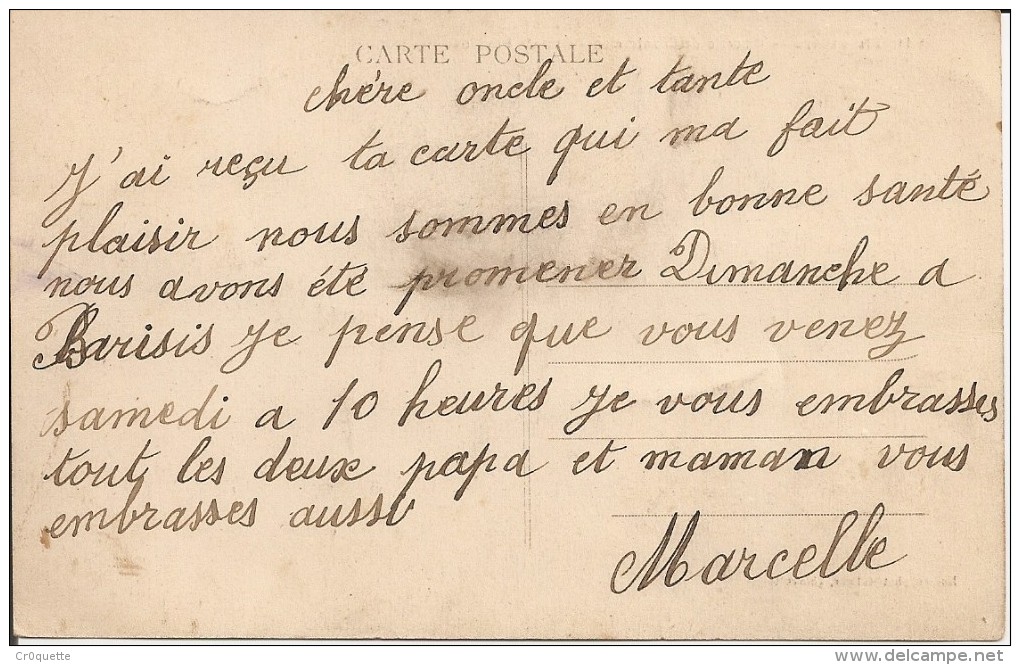 CARTE POSTALE
chére oncle et tante
J'ai reçu ta carte qui ma fait
plaisir nous sommes en bonne santé
nous avons été promener Dimanche a
Barisis Je pense que vous venez
samedi a 10 heures Je vous embrasses
tout les deux papa et maman vous
embrasses aussi
Marcelle
Cr0quette
www.delcampe.net